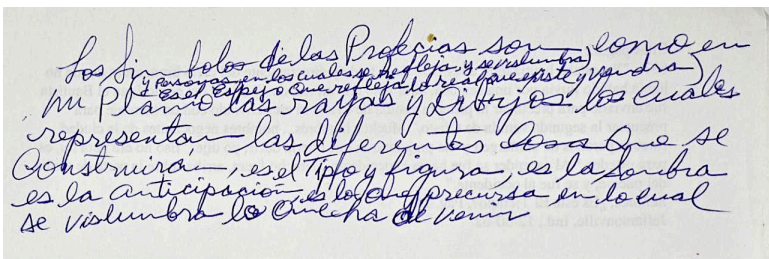 Los Simbolos de las Profecias son como en
(y Personas en los cuales se refleja, y se vislumbra)
(Es el Espejo que refleja lo real que existe y vendra)
un Plano las rayas y Dibujos los cuales
representan las diferentes cosa que se
Construirán, es el Tipo y figura, es la Sombra
es la anticipación es lo que precursa en lo cual
se vislumbra lo que ha de venir
Jeffersonville, Ind.